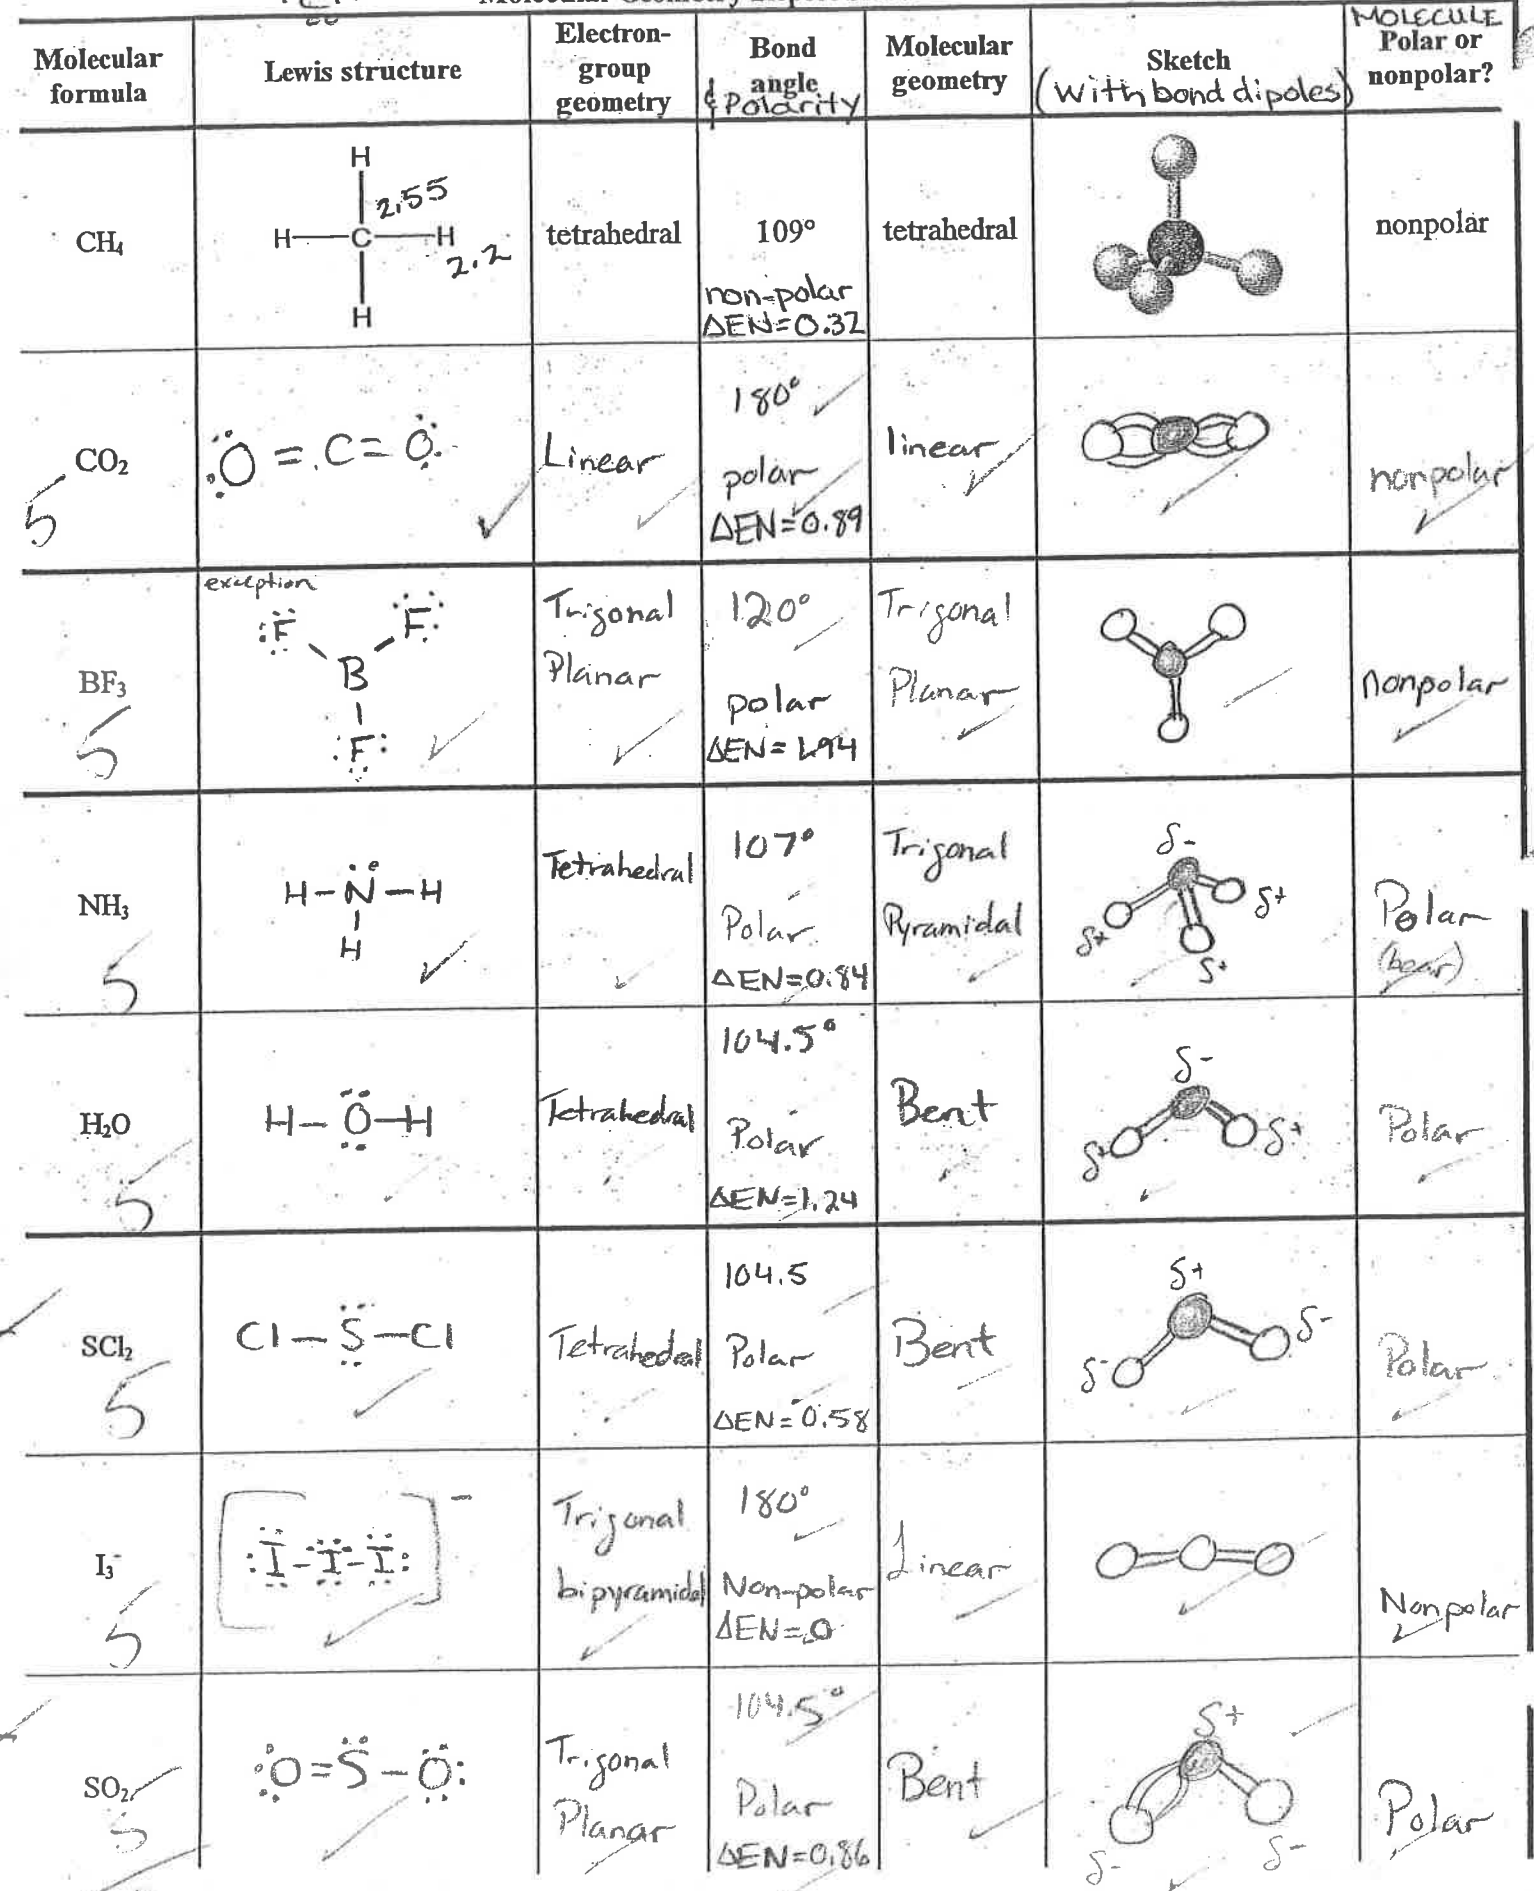 MOLECULE
Molecular formula
Lewis structure
Electron-group geometry
Bond angle & Polarity
Molecular geometry
Sketch (With bond dipoles)
Polar or nonpolar?
CH₄
H
2.55
H—C—H
2.2
H
tetrahedral
109°
non-polar
ΔEN=0.32
tetrahedral
nonpolar
CO₂
5
O = C = O
Linear
180°
polar
ΔEN=0.89
linear
nonpolar
BF₃
5
exception
F F
B
F
Trigonal
Planar
120°
polar
ΔEN=1.94
Trigonal
Planar
nonpolar
NH₃
5
H–N–H
H
Tetrahedral
107°
Polar
ΔEN=0.84
Trigonal
Pyramidal
δ-
δ+
δ+
δ+
Polar
(bear)
H₂O
5
H–O–H
Tetrahedral
104.5°
Polar
ΔEN=1.24
Bent
δ-
δ+
δ+
Polar
SCl₂
5
Cl–S–Cl
Tetrahedral
104.5
Polar
ΔEN=0.58
Bent
δ+
δ-
δ-
Polar
I₃⁻
5
[I–I–I]⁻
Trigonal
bipyramidal
180°
Non-polar
ΔEN=0
Linear
Nonpolar
SO₂
5
O=S–O
Trigonal
Planar
104.5°
Polar
ΔEN=0.86
Bent
δ+
δ-
δ-
Polar